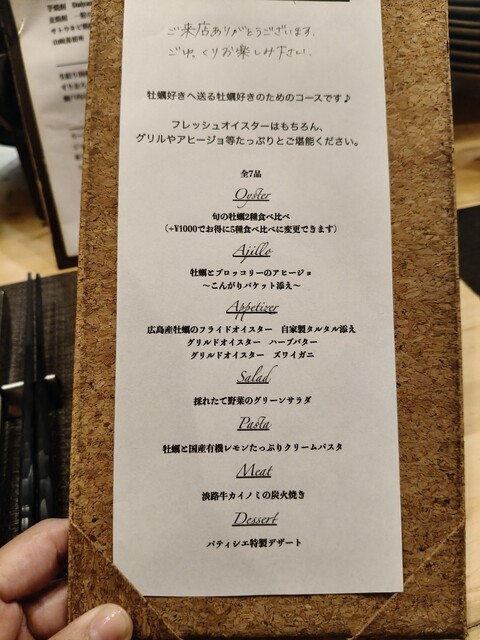 ご来店ありがとうございます.
ごゆっくりお楽しみ下さい.
牡蠣好きへ送る牡蠣好きのためのコースです♪
フレッシュオイスターはもちろん、
グリルやアヒージョ等たっぷりとご堪能ください。
全7品
Oyster
旬の牡蠣2種食べ比べ
(+¥1000でお得に5種食べ比べに変更できます)
Ajillo
牡蠣とブロッコリーのアヒージョ
～こんがりバケット添え～
Appetizer
広島産牡蠣のフライドオイスター 自家製タルタル添え
グリルドオイスター ハーブバター
グリルドオイスター ズワイガニ
Salad
採れたて野菜のグリーンサラダ
Pasta
牡蠣と国産有機レモンたっぷりクリームパスタ
Meat
淡路牛カイノミの炭火焼き
Dessert
パティシエ特製デザート